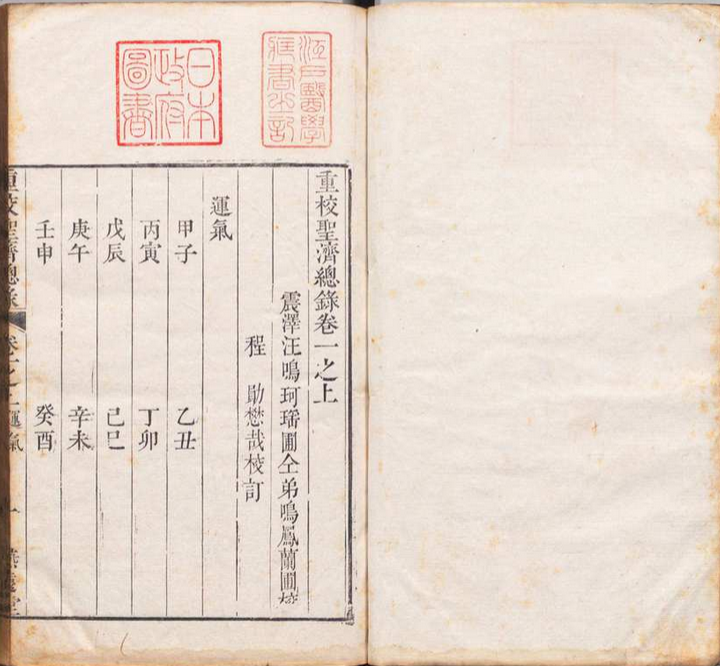 重校聖濟總錄卷一之上
震澤汪鳴珂瑶圃仝弟鳴鳳蘭圃校
程 勛懋哉校訂
運氣
甲子 乙丑
丙寅 丁卯
戊辰 己巳
庚午 辛未
壬申 癸酉
重校聖濟總錄 卷一之上運氣 一
日本政府圖書
江戶醫學藏書之記